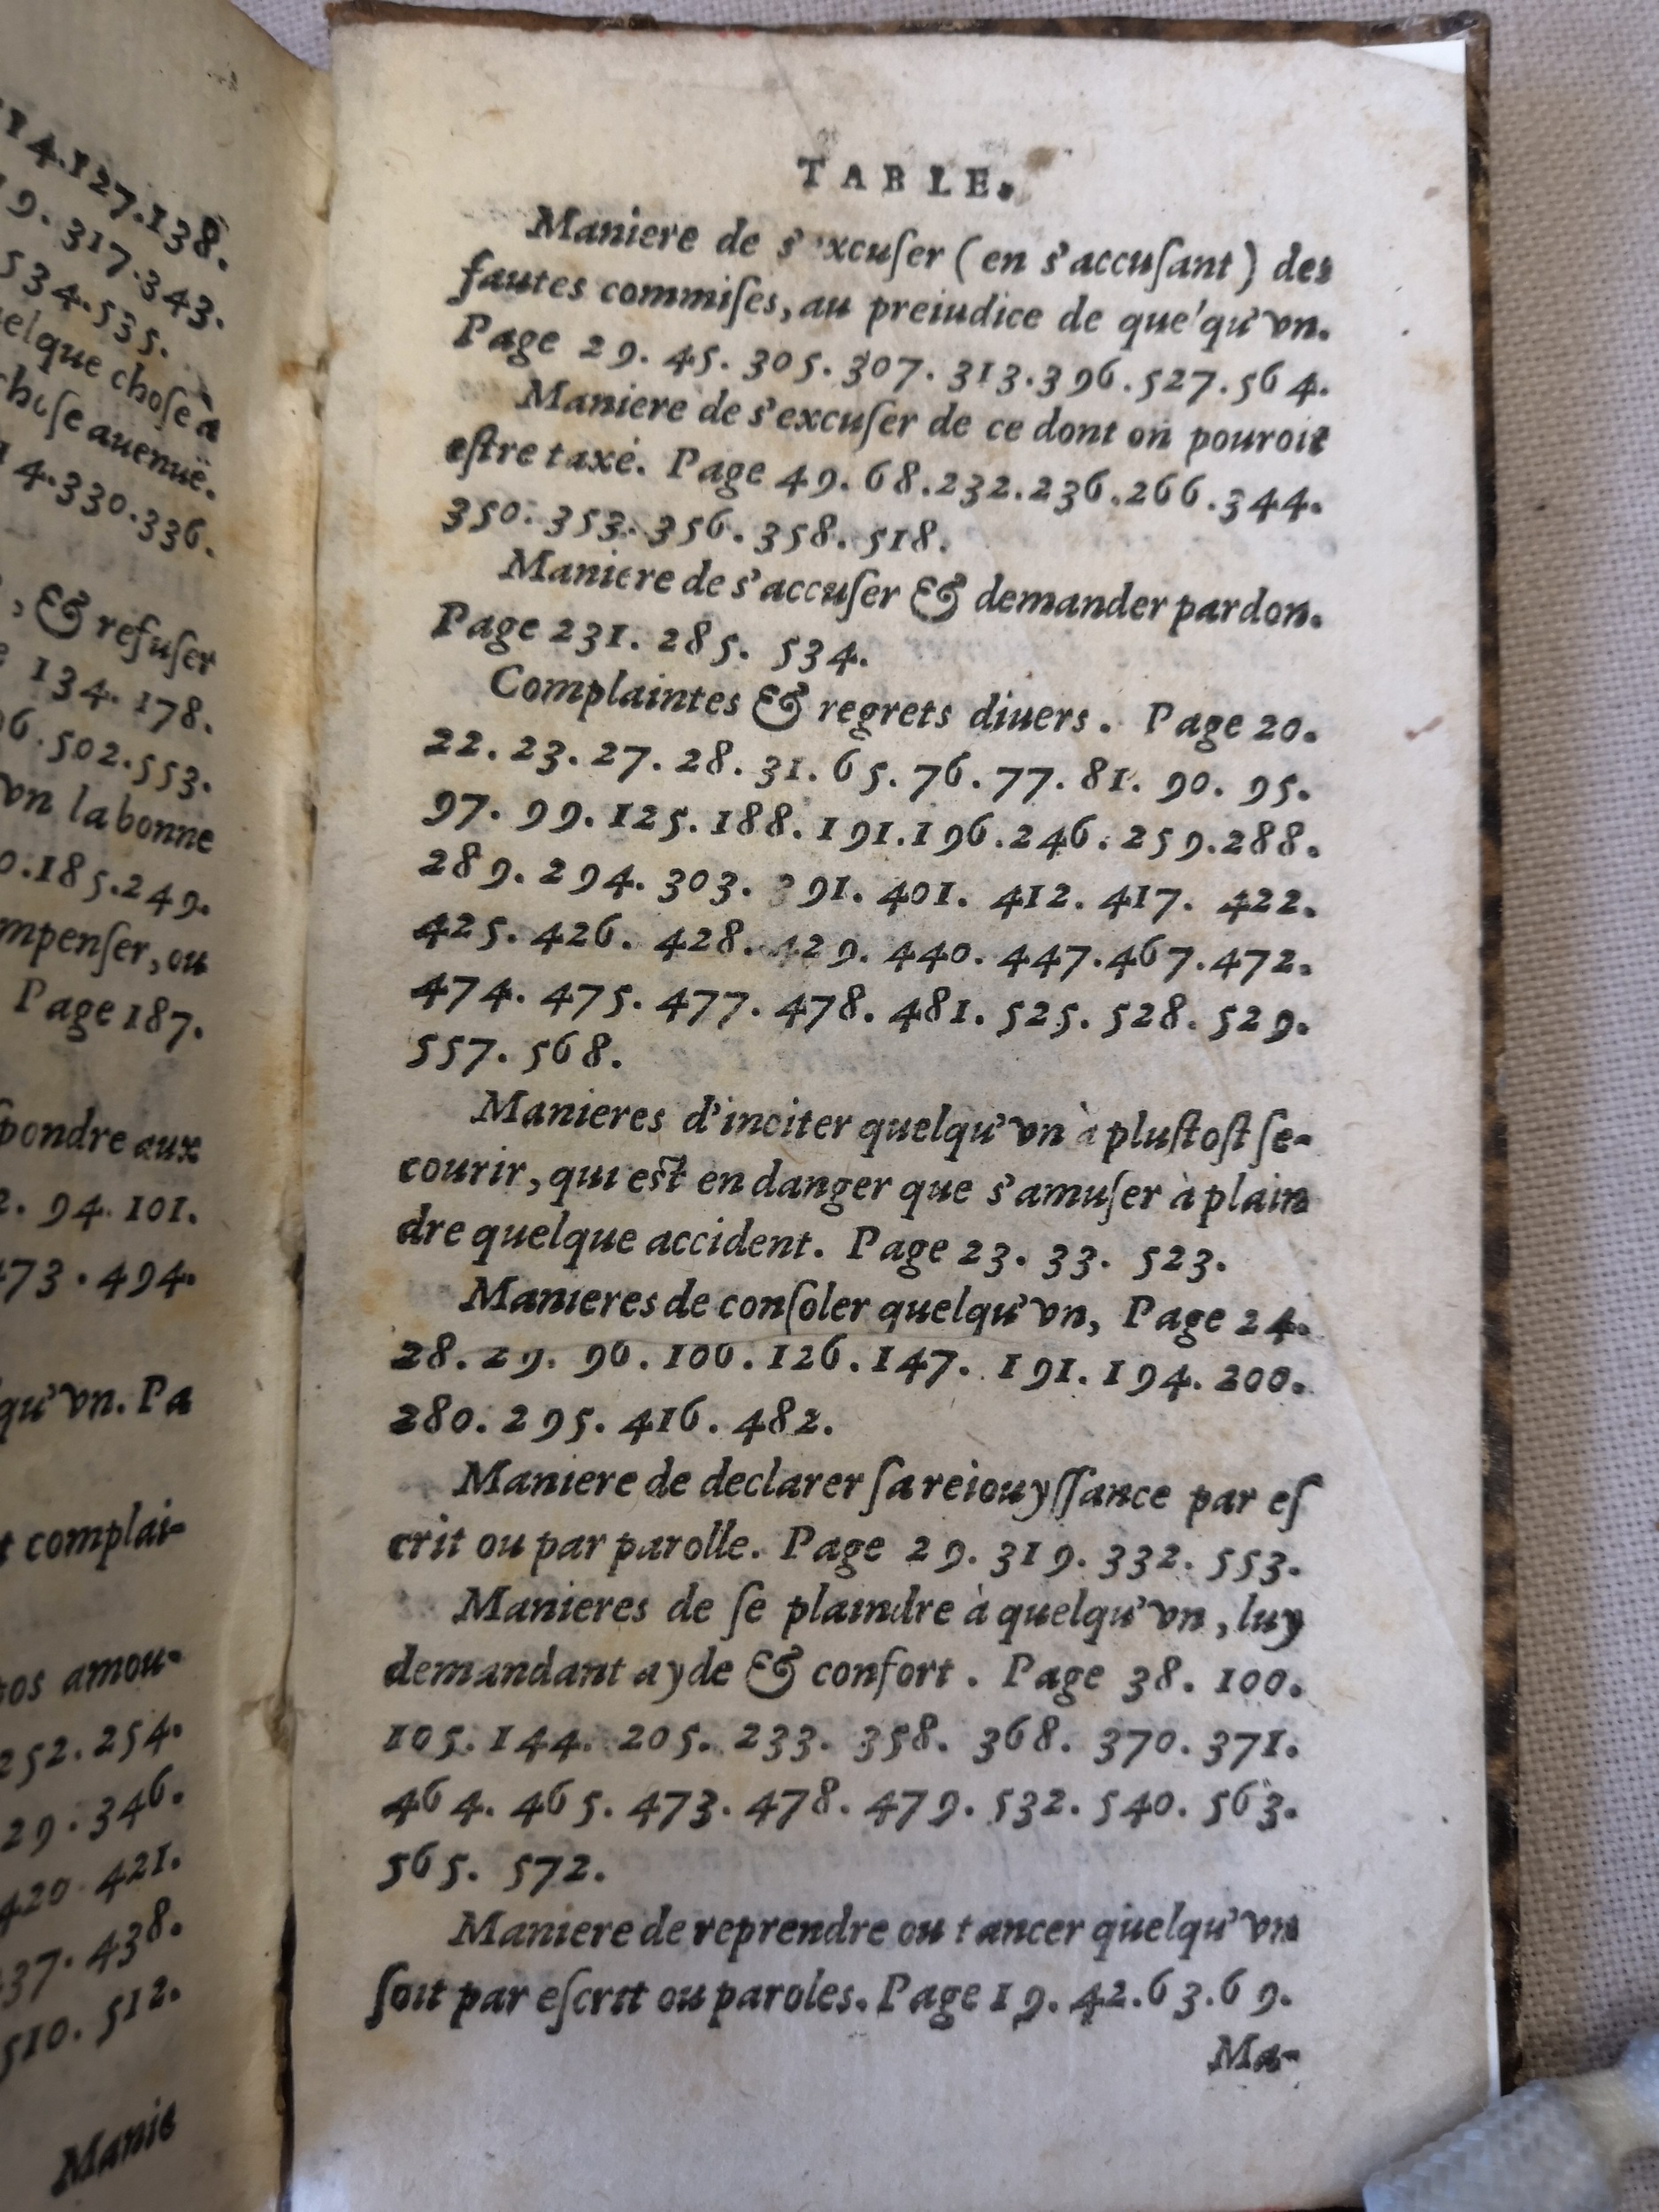 14.127.138.
9. 317.343.
534.535.
elque chose à
chose auenuë.
4.330.336.
, & refuſer
134. 178.
06.502.553.
vn la bonne
0.185.249.
mpenſer, ou
Page 187.
ſpondre aux
2. 94. 101.
473. 494.
qu'vn. Pa
t complai-
os amou-
252. 254.
29. 346.
420. 421.
37. 438.
510. 512.
Manie
TABLE.
Maniere de s'xcuſer (en s'accuſant) des
fautes commiſes, au preiudice de que'qu'vn.
Page 29. 45. 305. 307. 313.396.527.564.
Maniere de s'excuſer de ce dont on pouroit
eſtre taxé. Page 49. 68.232.236.266.344.
350. 353. 356. 358. 518.
Maniere de s'accuſer & demander pardon.
Page 231. 285. 534.
Complaintes & regrets diuers. Page 20.
22. 23. 27. 28. 31. 65. 76. 77. 81. 90. 95.
97. 99. 125. 188. 191.196.246. 259.288.
289. 294. 303. 391. 401. 412. 417. 422.
425. 426. 428. 429. 440. 447.467.472.
474. 475. 477. 478. 481. 525. 528. 529.
557. 568.
Manieres d'inciter quelqu'vn à pluſtoſt ſe-
courir, qui eſt en danger que s'amuſer à plain
dre quelque accident. Page 23. 33. 523.
Manieres de conſoler quelqu'vn, Page 24.
28. 29. 90. 100. 126. 147. 191. 194. 200.
280. 295. 416. 482.
Maniere de declarer ſa reiouyſſance par eſ
crit ou par parolle. Page 29. 319. 332. 553.
Manieres de ſe plaindre à quelqu'vn, luy
demandant ayde & confort. Page 38. 100.
105. 144. 205. 233. 358. 368. 370. 371.
464. 465. 473. 478. 479. 532. 540. 563.
565. 572.
Maniere de reprendre ou tancer quelqu'vn
ſoit par eſcrit ou paroles. Page 19. 42.63.69.
Ma-